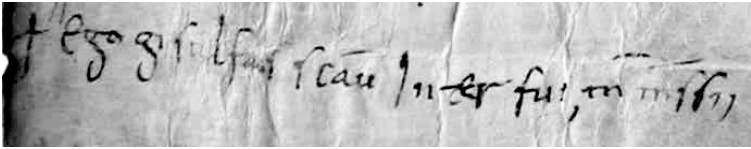 † ego gisulfus scau Inter fui,